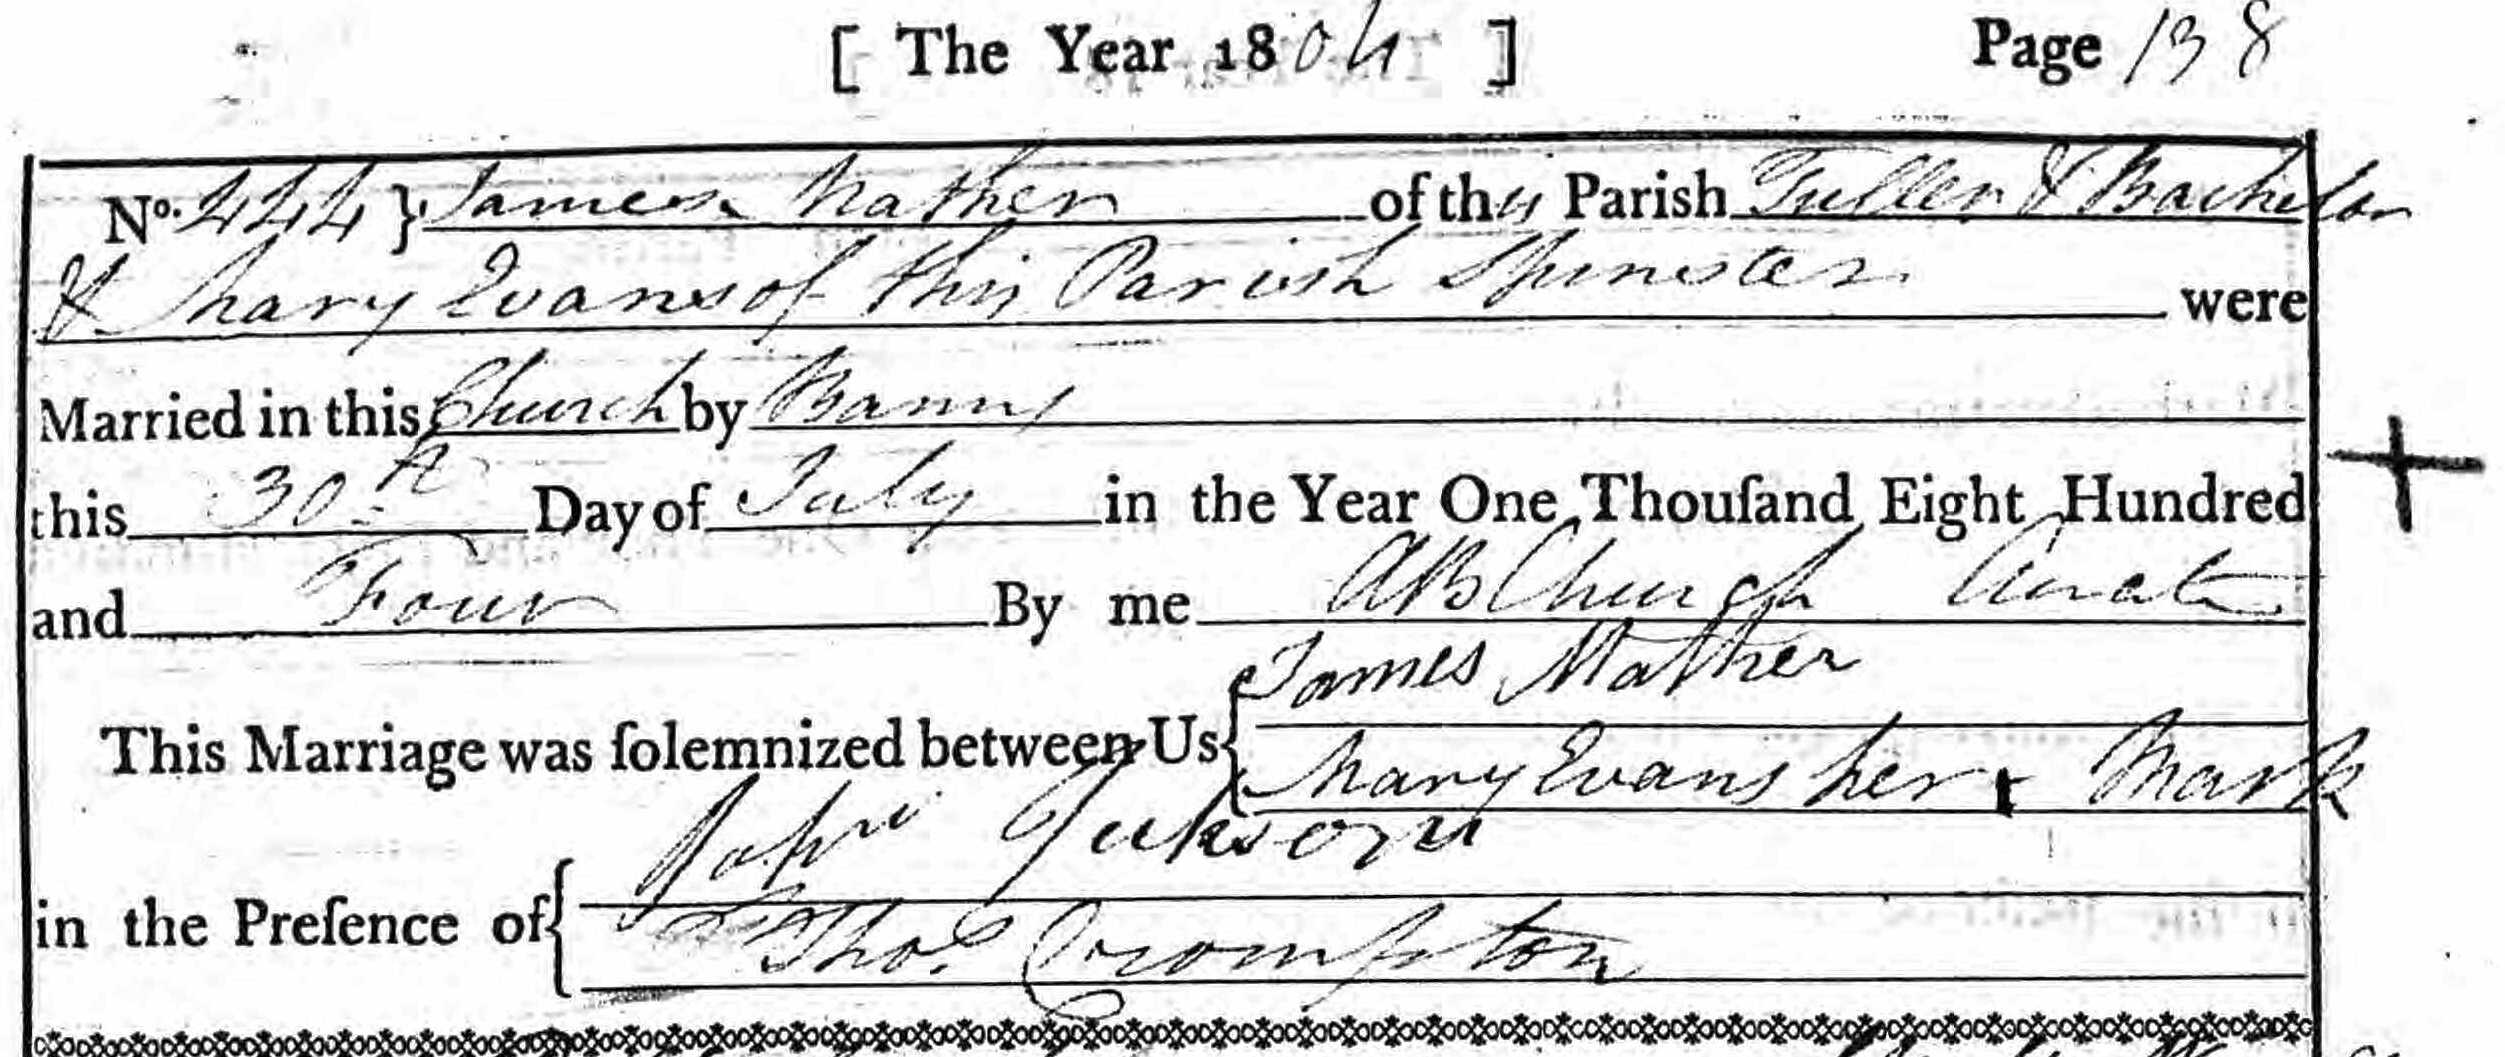 [ The Year 1804 ] Page 138
No. 444 } James Mather of this Parish Fuller & Bachelor
& Mary Evans of this Parish Spinster were
Married in this Church by Banns
this 30th Day of July in the Year One Thouſand Eight Hundred
and Four By me AB Church Curate
James Mather
This Marriage was ſolemnized between Us {
Mary Evans her x Mark
John Jukson
in the Preſence of {
Thos. Crompton